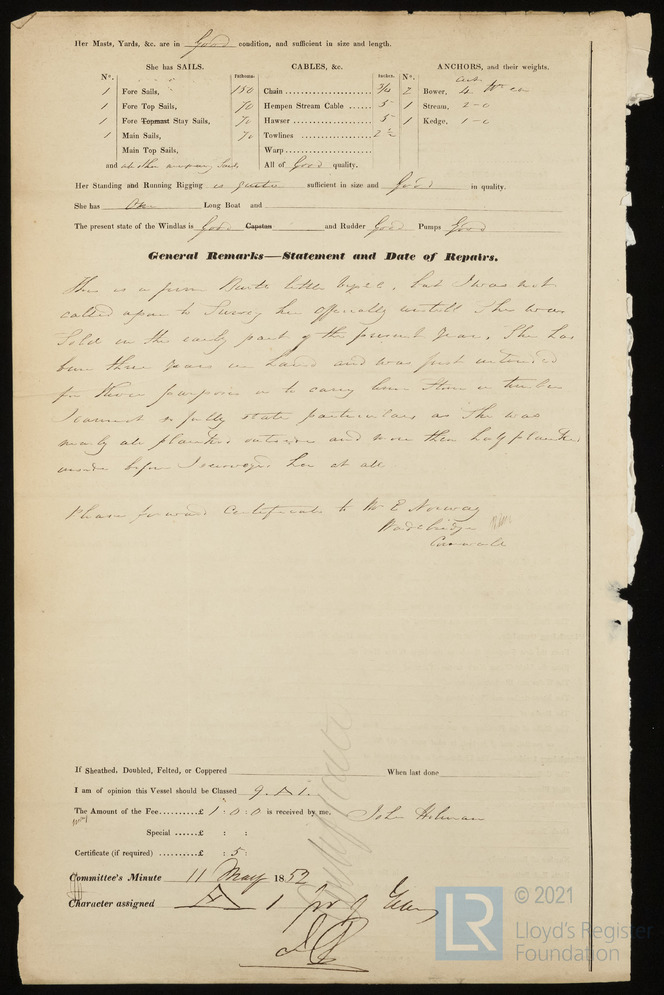 Her Masts, Yards, &c. are in Good condition, and sufficient in size and length.
She has SAILS.
CABLES, &c.
ANCHORS, and their weights.
N°.
Fathoms.
Inches.
N°.
1 Fore Sails,
150 Chain 3/4
2 Bower, 4
1 Fore Top Sails,
70 Hempen Stream Cable 5
1 Stream, 2-0
1 Fore Topmast Stay Sails,
70 Hawser 5
1 Kedge, 1-0
1 Main Sails,
70 Towlines 2½
Main Top Sails,
Warp
and all other Sails
All of Good quality.
Her Standing and Running Rigging is sufficient in size and Good in quality.
She has One Long Boat and
The present state of the Windlas is Good Capstan and Rudder Good Pumps Good
General Remarks—Statement and Date of Repairs.
This is a little but I was not
called upon to Survey her officially untill She was
Sold in the early part of the present Year. She has
been three Years in hand and was first intended
for purposes to carry Stone or timber
I cannot so fully state particulars as She was
nearly all planked outside and more then half planked
inside before I surveyed her at all
Please forward Certificate to Mr E Norway
Wadebridge
Cornwall
If Sheathed, Doubled, Felted, or Coppered
When last done
I am of opinion this Vessel should be Classed 9. A 1.
The Amount of the Fee £ 1 : 0 : 0 is received by me, John
Special £ : :
Certificate (if required) £ : 5 :
Committee's Minute 11 May 1852
Character assigned A 1
© 2021
LR
Lloyd's Register
Foundation